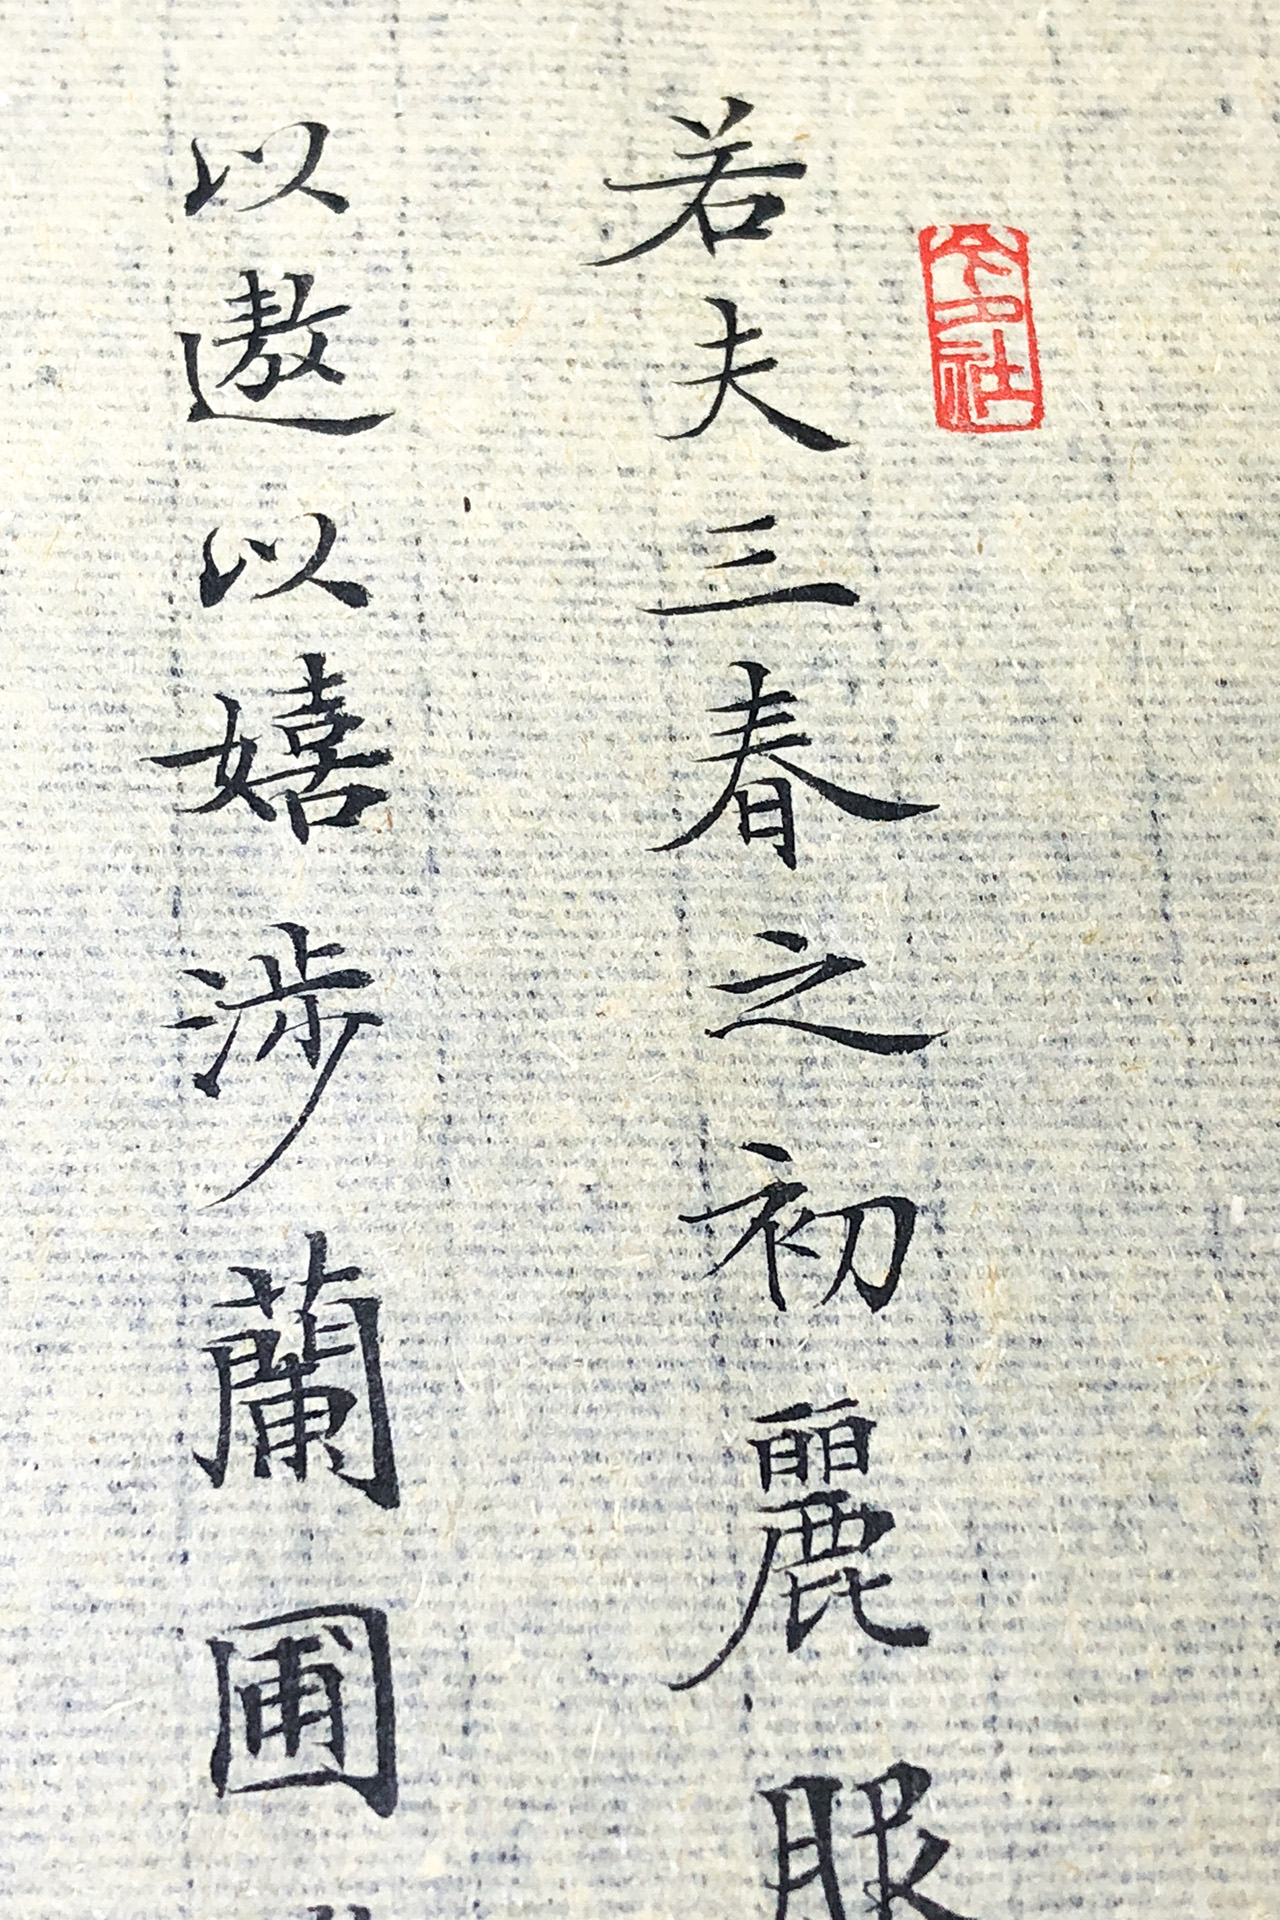 若夫三春之初麗服
以遨以嬉涉蘭圃